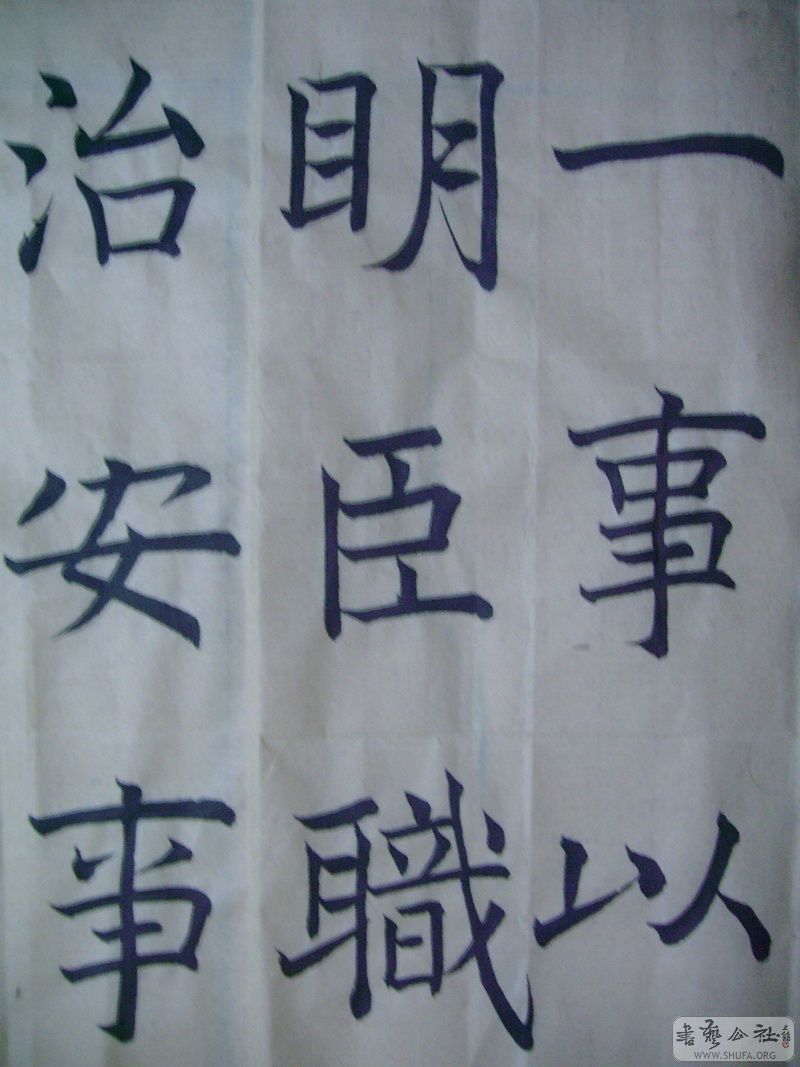 一事以
明臣職
治安事
書藝公社
WWW.SHUFA.ORG